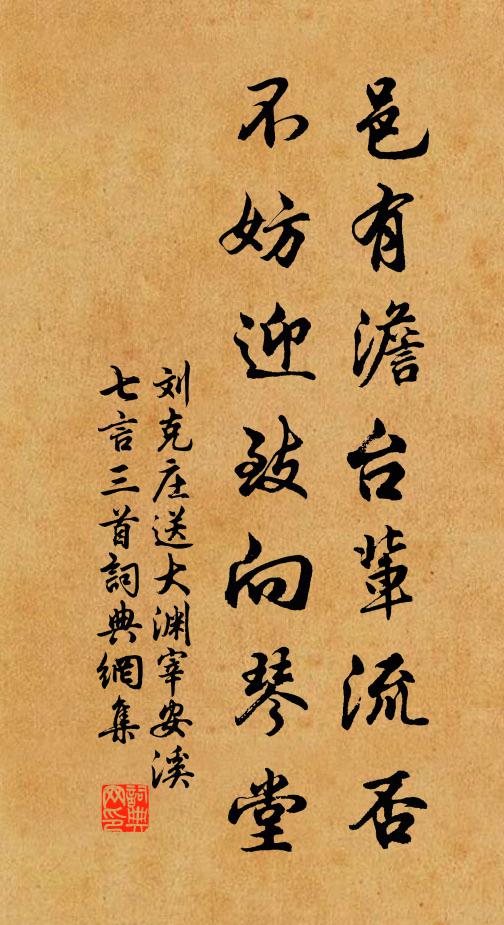 邑有澹台輩流否
不妨迎致向琴堂
刘克庄送大渊宰安溪
七言三首詞典網集
詞典
网印